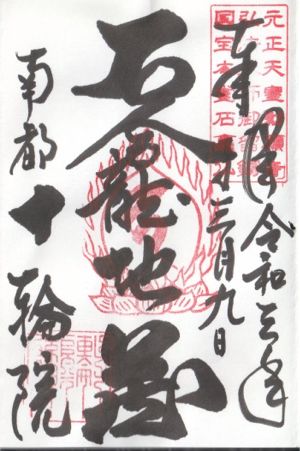 元正天皇勅願寺
弘法大師御留錫
国宝本堂石龕仏
奉拝 令和三年
十二月九日
石龕地蔵
南都十輪院